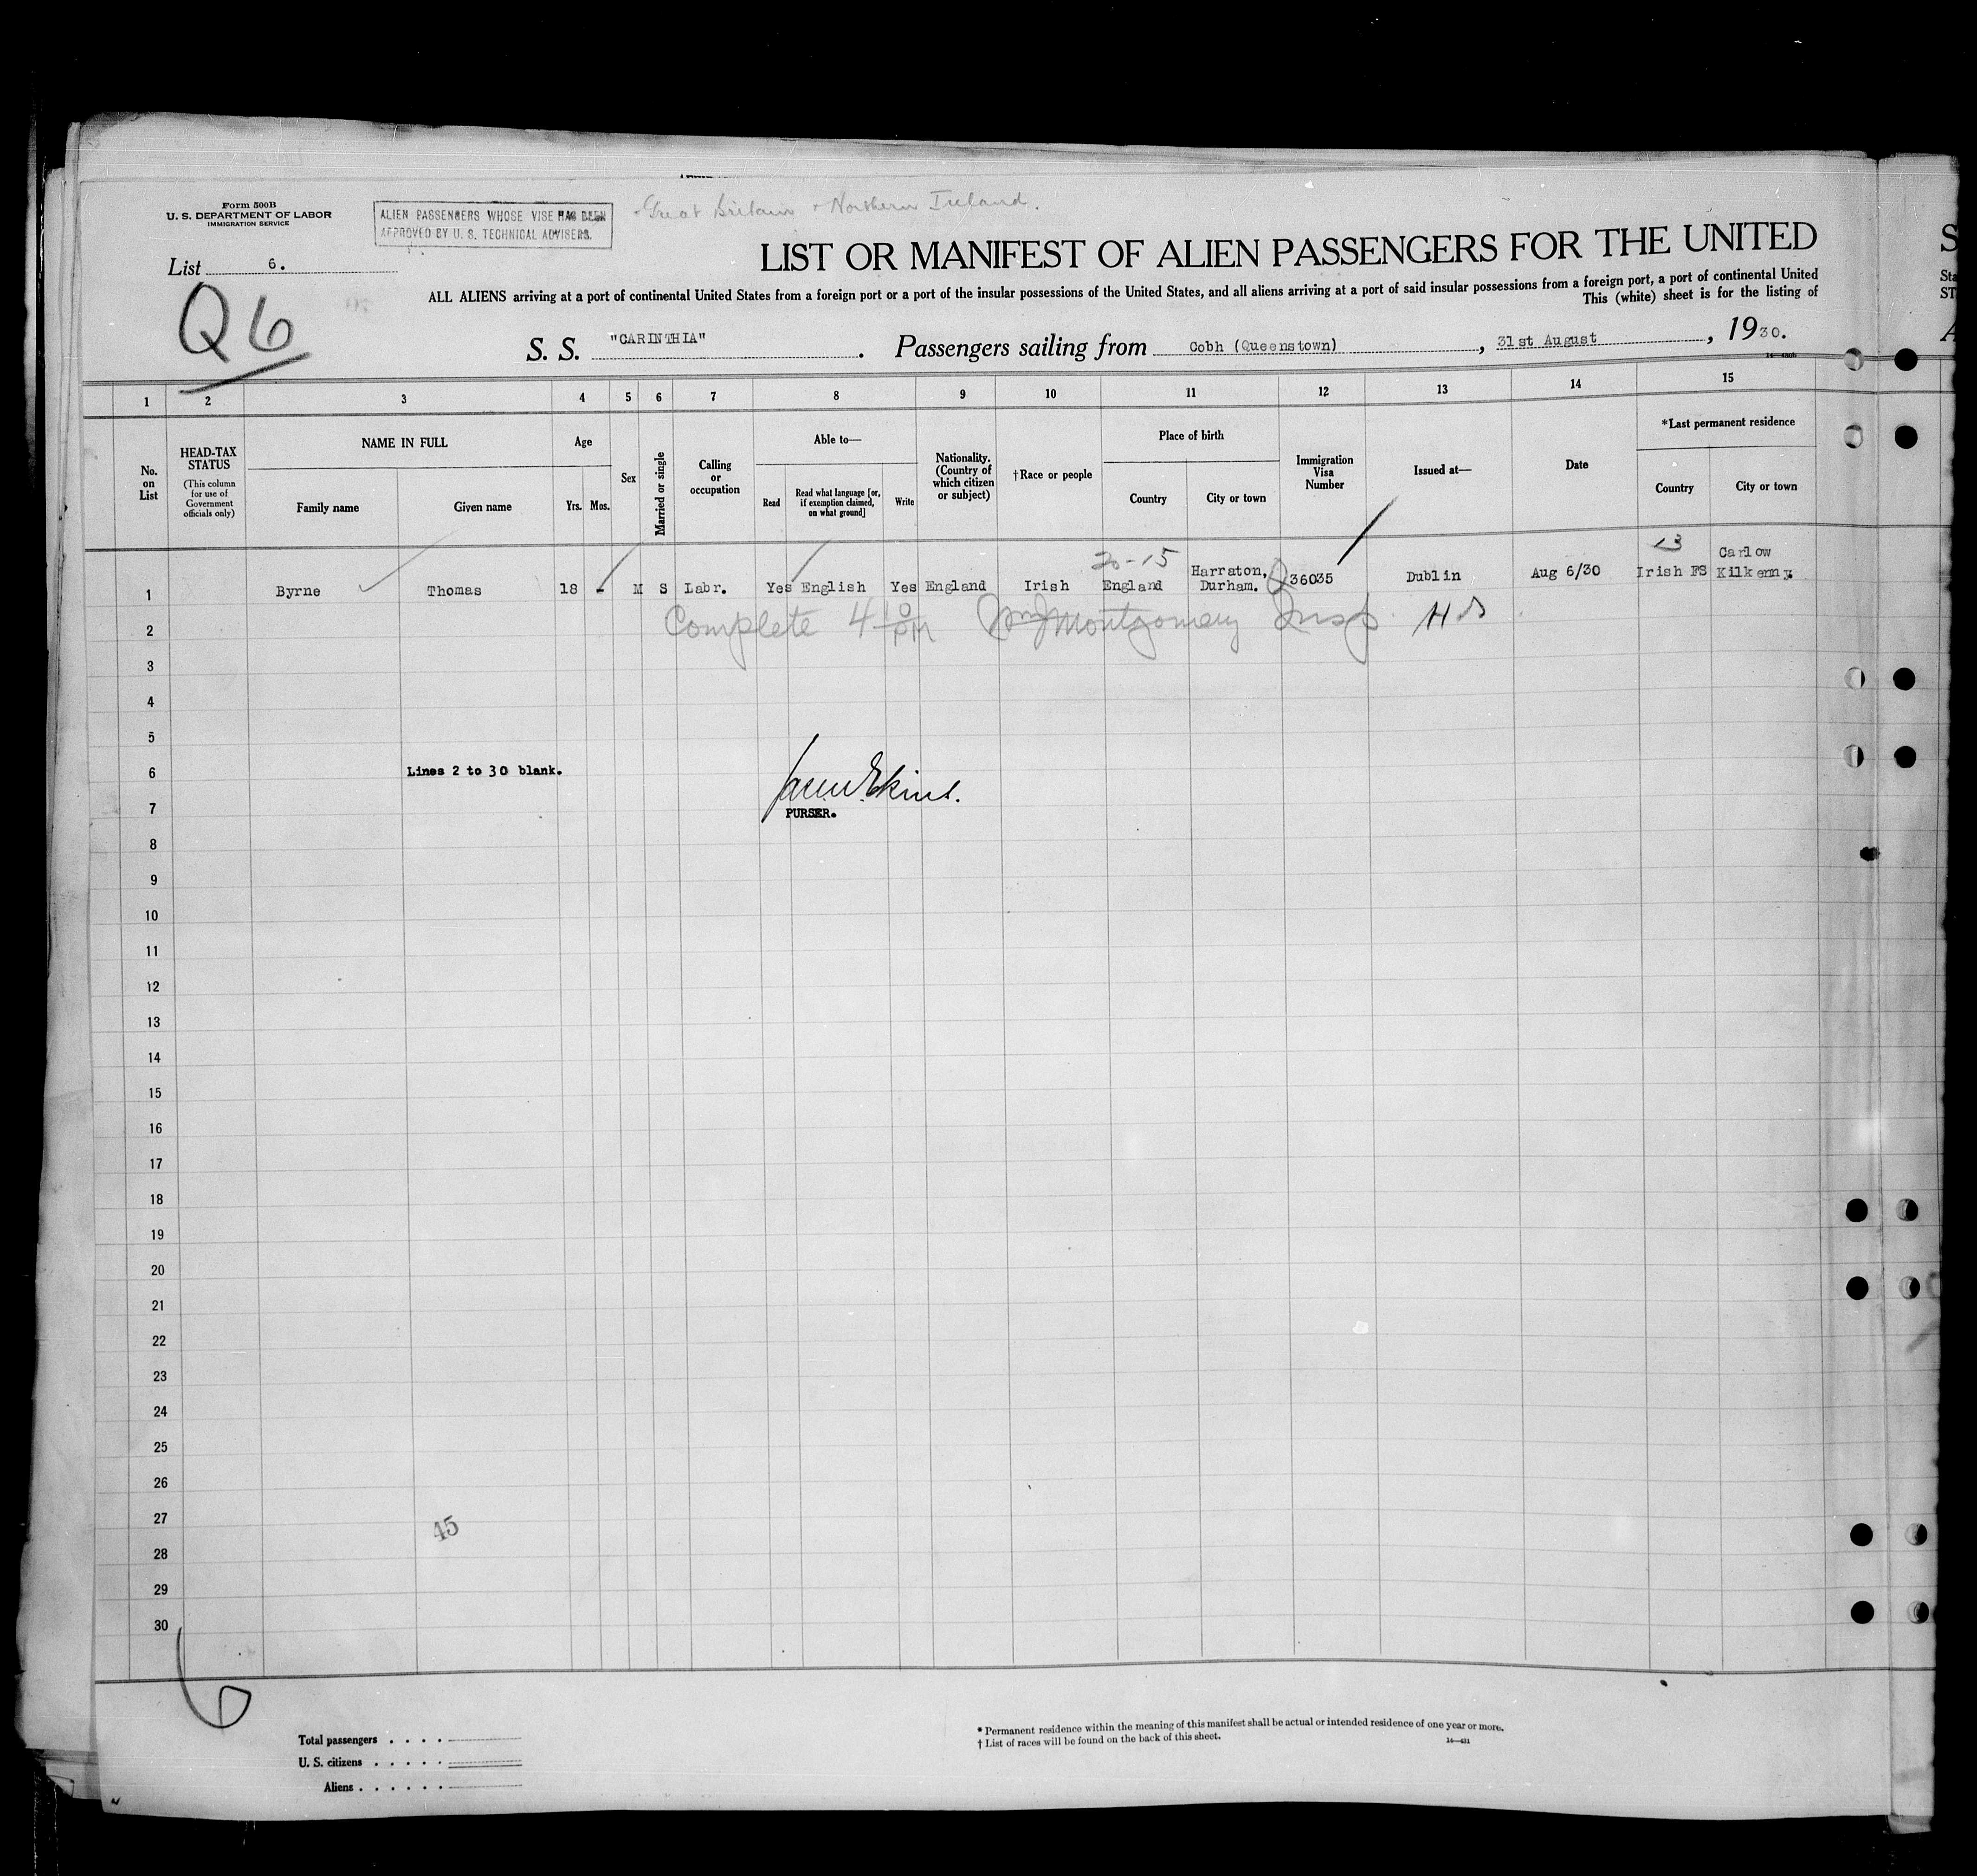 Form 500B
U. S. DEPARTMENT OF LABOR
IMMIGRATION SERVICE
ALIEN PASSENGERS WHOSE VISE HAS BEEN
APPROVED BY U. S. TECHNICAL ADVISERS.
Great Britain & Northern Ireland.
List 6.
Q6
LIST OR MANIFEST OF ALIEN PASSENGERS FOR THE UNITED
S
ALL ALIENS arriving at a port of continental United States from a foreign port or a port of the insular possessions of the United States, and all aliens arriving at a port of said insular possessions from a foreign port, a port of continental United
Sta
This (white) sheet is for the listing of
ST
S. S. "CARINTHIA" . Passengers sailing from Cobh (Queenstown) , 31st August , 1930.
A
1 2 3 4 5 6 7 8 9 10 11 12 13 14 15
No. on List
HEAD-TAX STATUS
(This column for use of Government officials only)
NAME IN FULL
Family name
Given name
Age
Yrs. Mos.
Sex
Married or single
Calling or occupation
Able to—
Read
Read what language [or, if exemption claimed, on what ground]
Write
Nationality. (Country of which citizen or subject)
†Race or people
Place of birth
Country
City or town
Immigration Visa Number
Issued at—
Date
*Last permanent residence
Country
City or town
20-15
13
1 Byrne Thomas 18 - M S Labr. Yes English Yes England Irish England Harraton, Durham. 36035 Dublin Aug 6/30 Irish FS Carlow Kilkenny.
2 Complete 4 10 PM Montgomery Insp.
3
4
5
6 Lines 2 to 30 blank.
7 PURSER.
8
9
10
11
12
13
14
15
16
17
18
19
20
21
22
23
24
25
26
27
45
28
29
30
6
Total passengers . . . .
U. S. citizens . . . . .
Aliens . . . . . .
* Permanent residence within the meaning of this manifest shall be actual or intended residence of one year or more.
† List of races will be found on the back of this sheet.